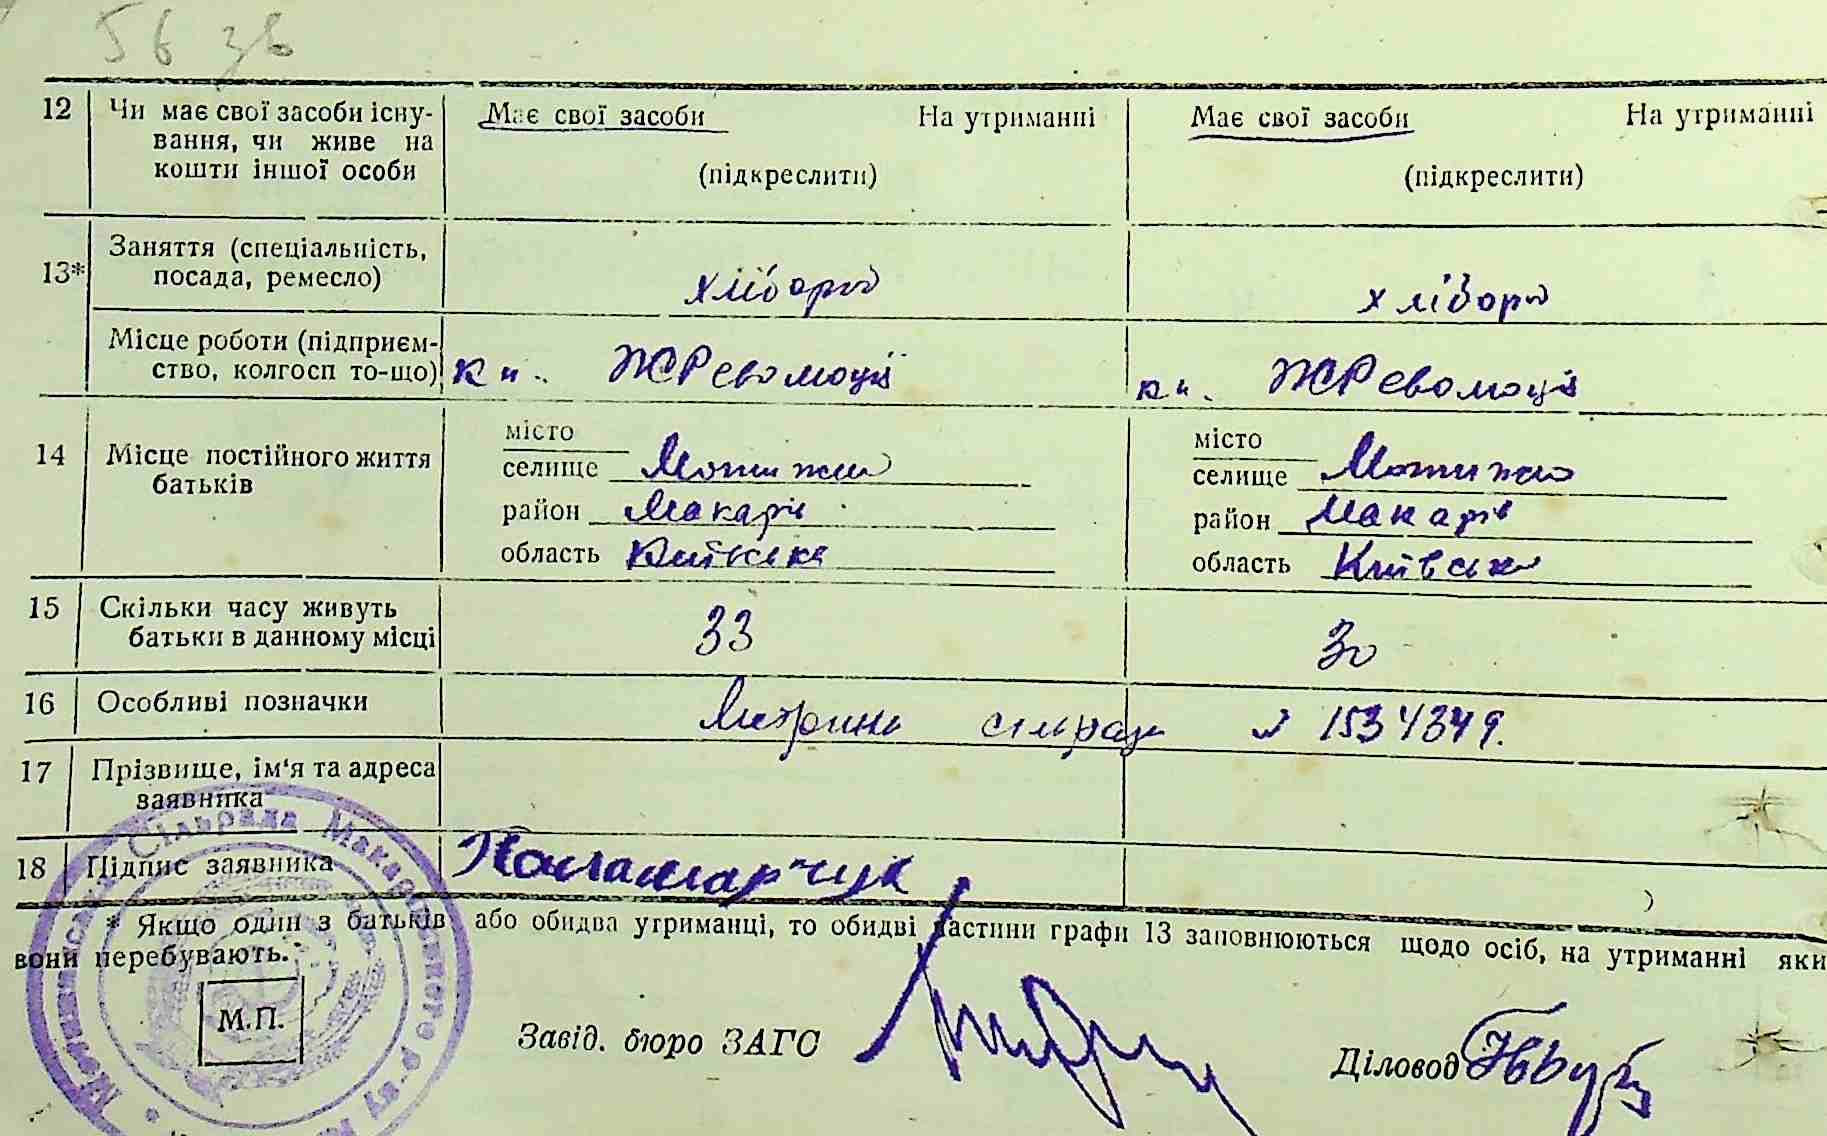 56 зв
12 Чи має свої засоби існу- Має свої засоби На утриманні Має свої засоби На утриманні
вання, чи живе на
кошти іншої особи (підкреслити) (підкреслити)
13* Заняття (спеціальність,
посада, ремесло) хлібороб хлібороб
Місце роботи (підприєм-
ство, колгосп то-що) ЖРеволюція ЖРеволюція
14 Місце постійного життя
батьків
місто місто
селище Мотижин селище Мотижин
район Макарів район Макарів
область Київська область Київська
15 Скільки часу живуть
батьки в данному місці 33 30
16 Особливі позначки 1534349.
17 Прізвище, ім'я та адреса
заявника
18 Підпис заявника Паламарчук
* Якщо один з батьків або обидва утриманці, то обидві частини графи 13 заповнюються щодо осіб, на утриманні яки
вони перебувають.
М.П.
Завід. бюро ЗАГС
Діловод
Сільрада Макарівського р-ну